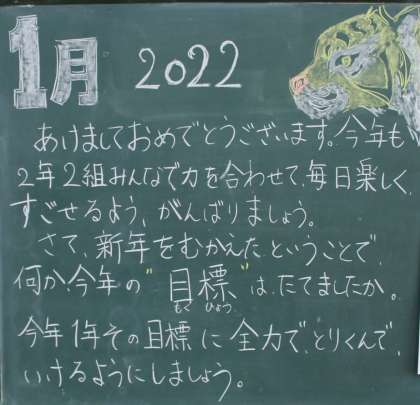 1月 2022
あけましておめでとうございます。今年も
2年2組みんなで力を合わせて、毎日楽しく
すごせるよう、がんばりましょう。
さて、新年をむかえたということで、
何か、今年の"目標"は、たてましたか。
もく ひょう
今年1年その目標に全力で、とりくんで、
いけるようにしましょう。